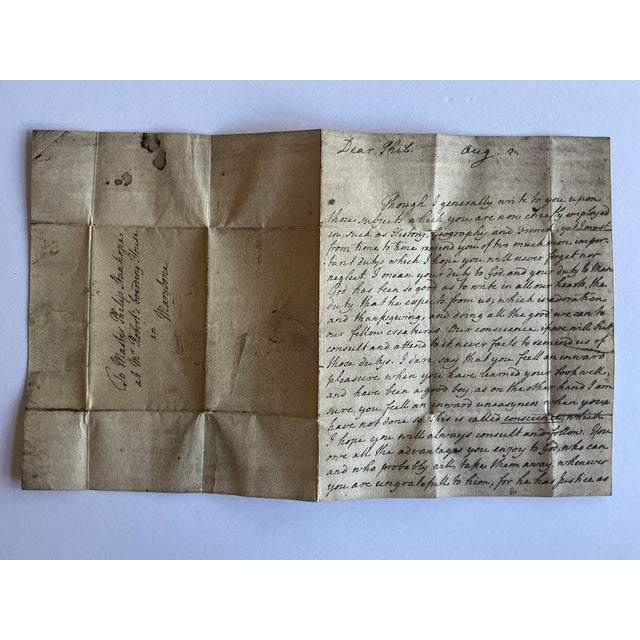 To Master Philip Stanhope
at Mr Robert's boarding House
in
Marybone
Dear Phil. Aug. 2.
Though I generally write to you upon
those subjects which you are now chiefly employed
in, such as History, Geography, and French, yet I must
from time to time remind you of two much more impor-
tant dutys which I hope you will never forget nor
neglect. I mean your duty to God and your duty to Man
God has been so good as to write in all our hearts, the
duty that he expects from us, which is adoration
and thanksgiving, and doing all the good we can to
our fellow creatures. Our conscience, if we will but
consult and attend to it never fails to remind us of
those dutys. I dare say that you feel an inward
pleasure when you have learned your book well,
and have been a good boy, as on the other hand I am
sure you feel an inward uneasyness when you
have not done so. This is called conscience, which
I hope you will always consult and follow. You
owe all the advantages you enjoy to God, who can
and who probably will take them away, whenever
you are ungratefull to him, for he has justice as